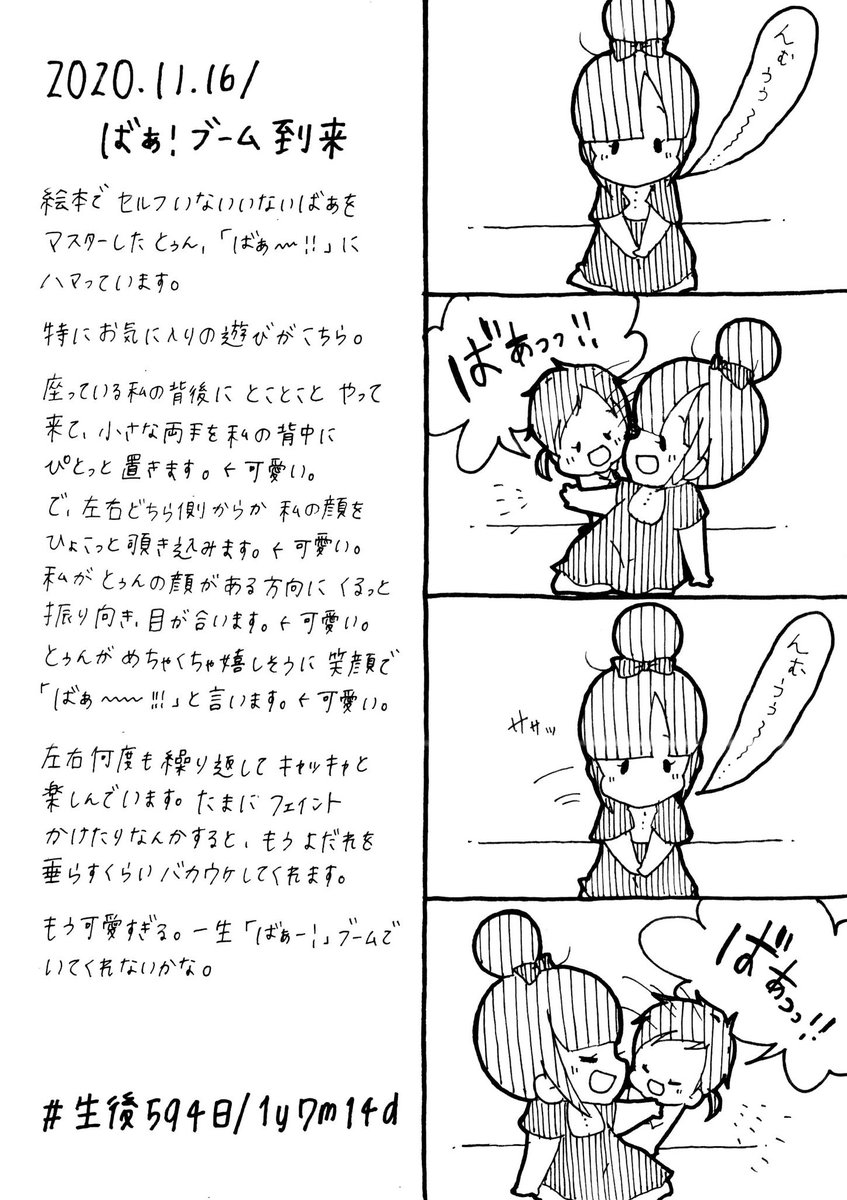 2020.11.16/
ばぁ！ブーム到来
絵本でセルフいないいないばあを
マスターしたとぅん、「ばぁ〜!!」に
ハマっています。
特にお気に入りの遊びがこちら。
座っている私の背後にとことことやって
来て、小さな両手を私の背中に
ぴとっと置きます。←可愛い。
で、左右どちら側からか私の顔を
ひょこっと覗き込みます。←可愛い。
私がとぅんの顔がある方向にくるっと
振り向き、目が合います。←可愛い。
とぅんがめちゃくちゃ嬉しそうに笑顔で
「ばぁ〜〜!!!」と言います。←可愛い。
左右何度も繰り返してキャッキャと
楽しんでいます。たまにフェイント
かけたりなんかすると、もうよだれを
垂らすくらいバカウケしてくれます。
もう可愛すぎる。一生「ばぁー!」ブームで
いてくれないかな。
#生後594日/1y7m14d
んむぅぅ〜〜
ばあっっ!!
んむぅぅ〜
ササッ
ばあっっ!!